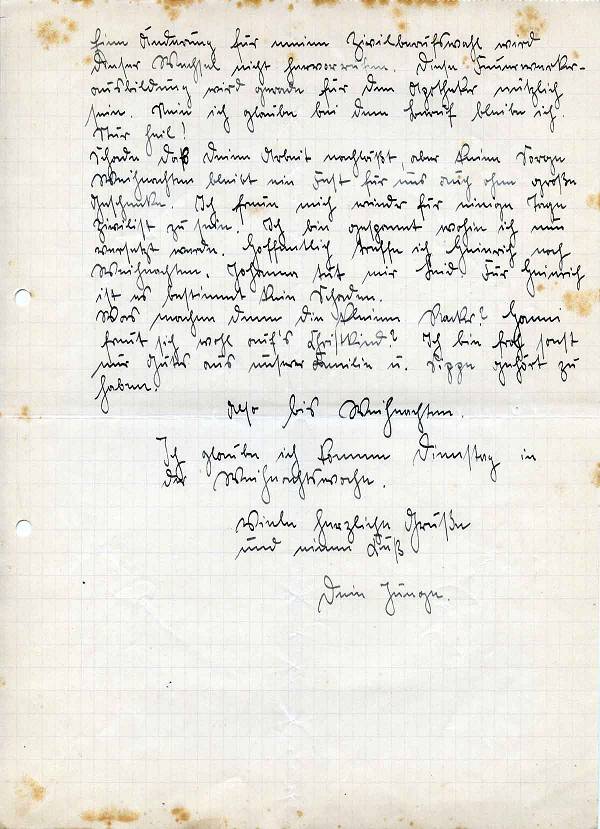 Eine Änderung für meine Zivilberufswahl wird
dieser Wechsel nicht hervorrufen. Diese Feuerwerker-
ausbildung wird gerade für den Apotheker nützlich
sein. Nein ich glaube bei dem Beruf bleibe ich.
Nur heil!
Schade daß Deine Arbeit nachläßt, aber keine Sorge
Weihnachten bleibt ein Fest für uns auch ohne große
Geschenke. Ich freue mich wieder für einige Tage
Zivilist zu sein. Ich bin gespannt wohin ich nun
versetzt werde. Hoffentlich treffe ich Heinrich noch
Weihnachten. Johanna tut mir Leid. Für Heinrich
ist es bestimmt kein Schaden.
Was machen denn die kleinen Racker? Hanni
freut sich wohl auf's Christkind? Ich bin froh sonst
nur Gutes aus unserer Familie u. Sippe gehört zu
haben.
Also bis Weihnachten.
Ich glaube ich komme Dienstag in
der Weihnachtswoche.
Viele herzliche Grüße
und einen Kuß
Dein Junge.